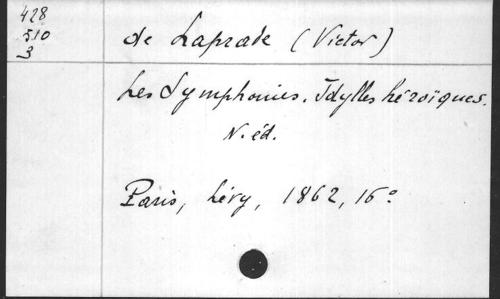 428
510
3
de Laprade (Victor)
Les Symphonies. Idylles héroïques.
N. éd.
Paris, Lévy, 1862, 16°